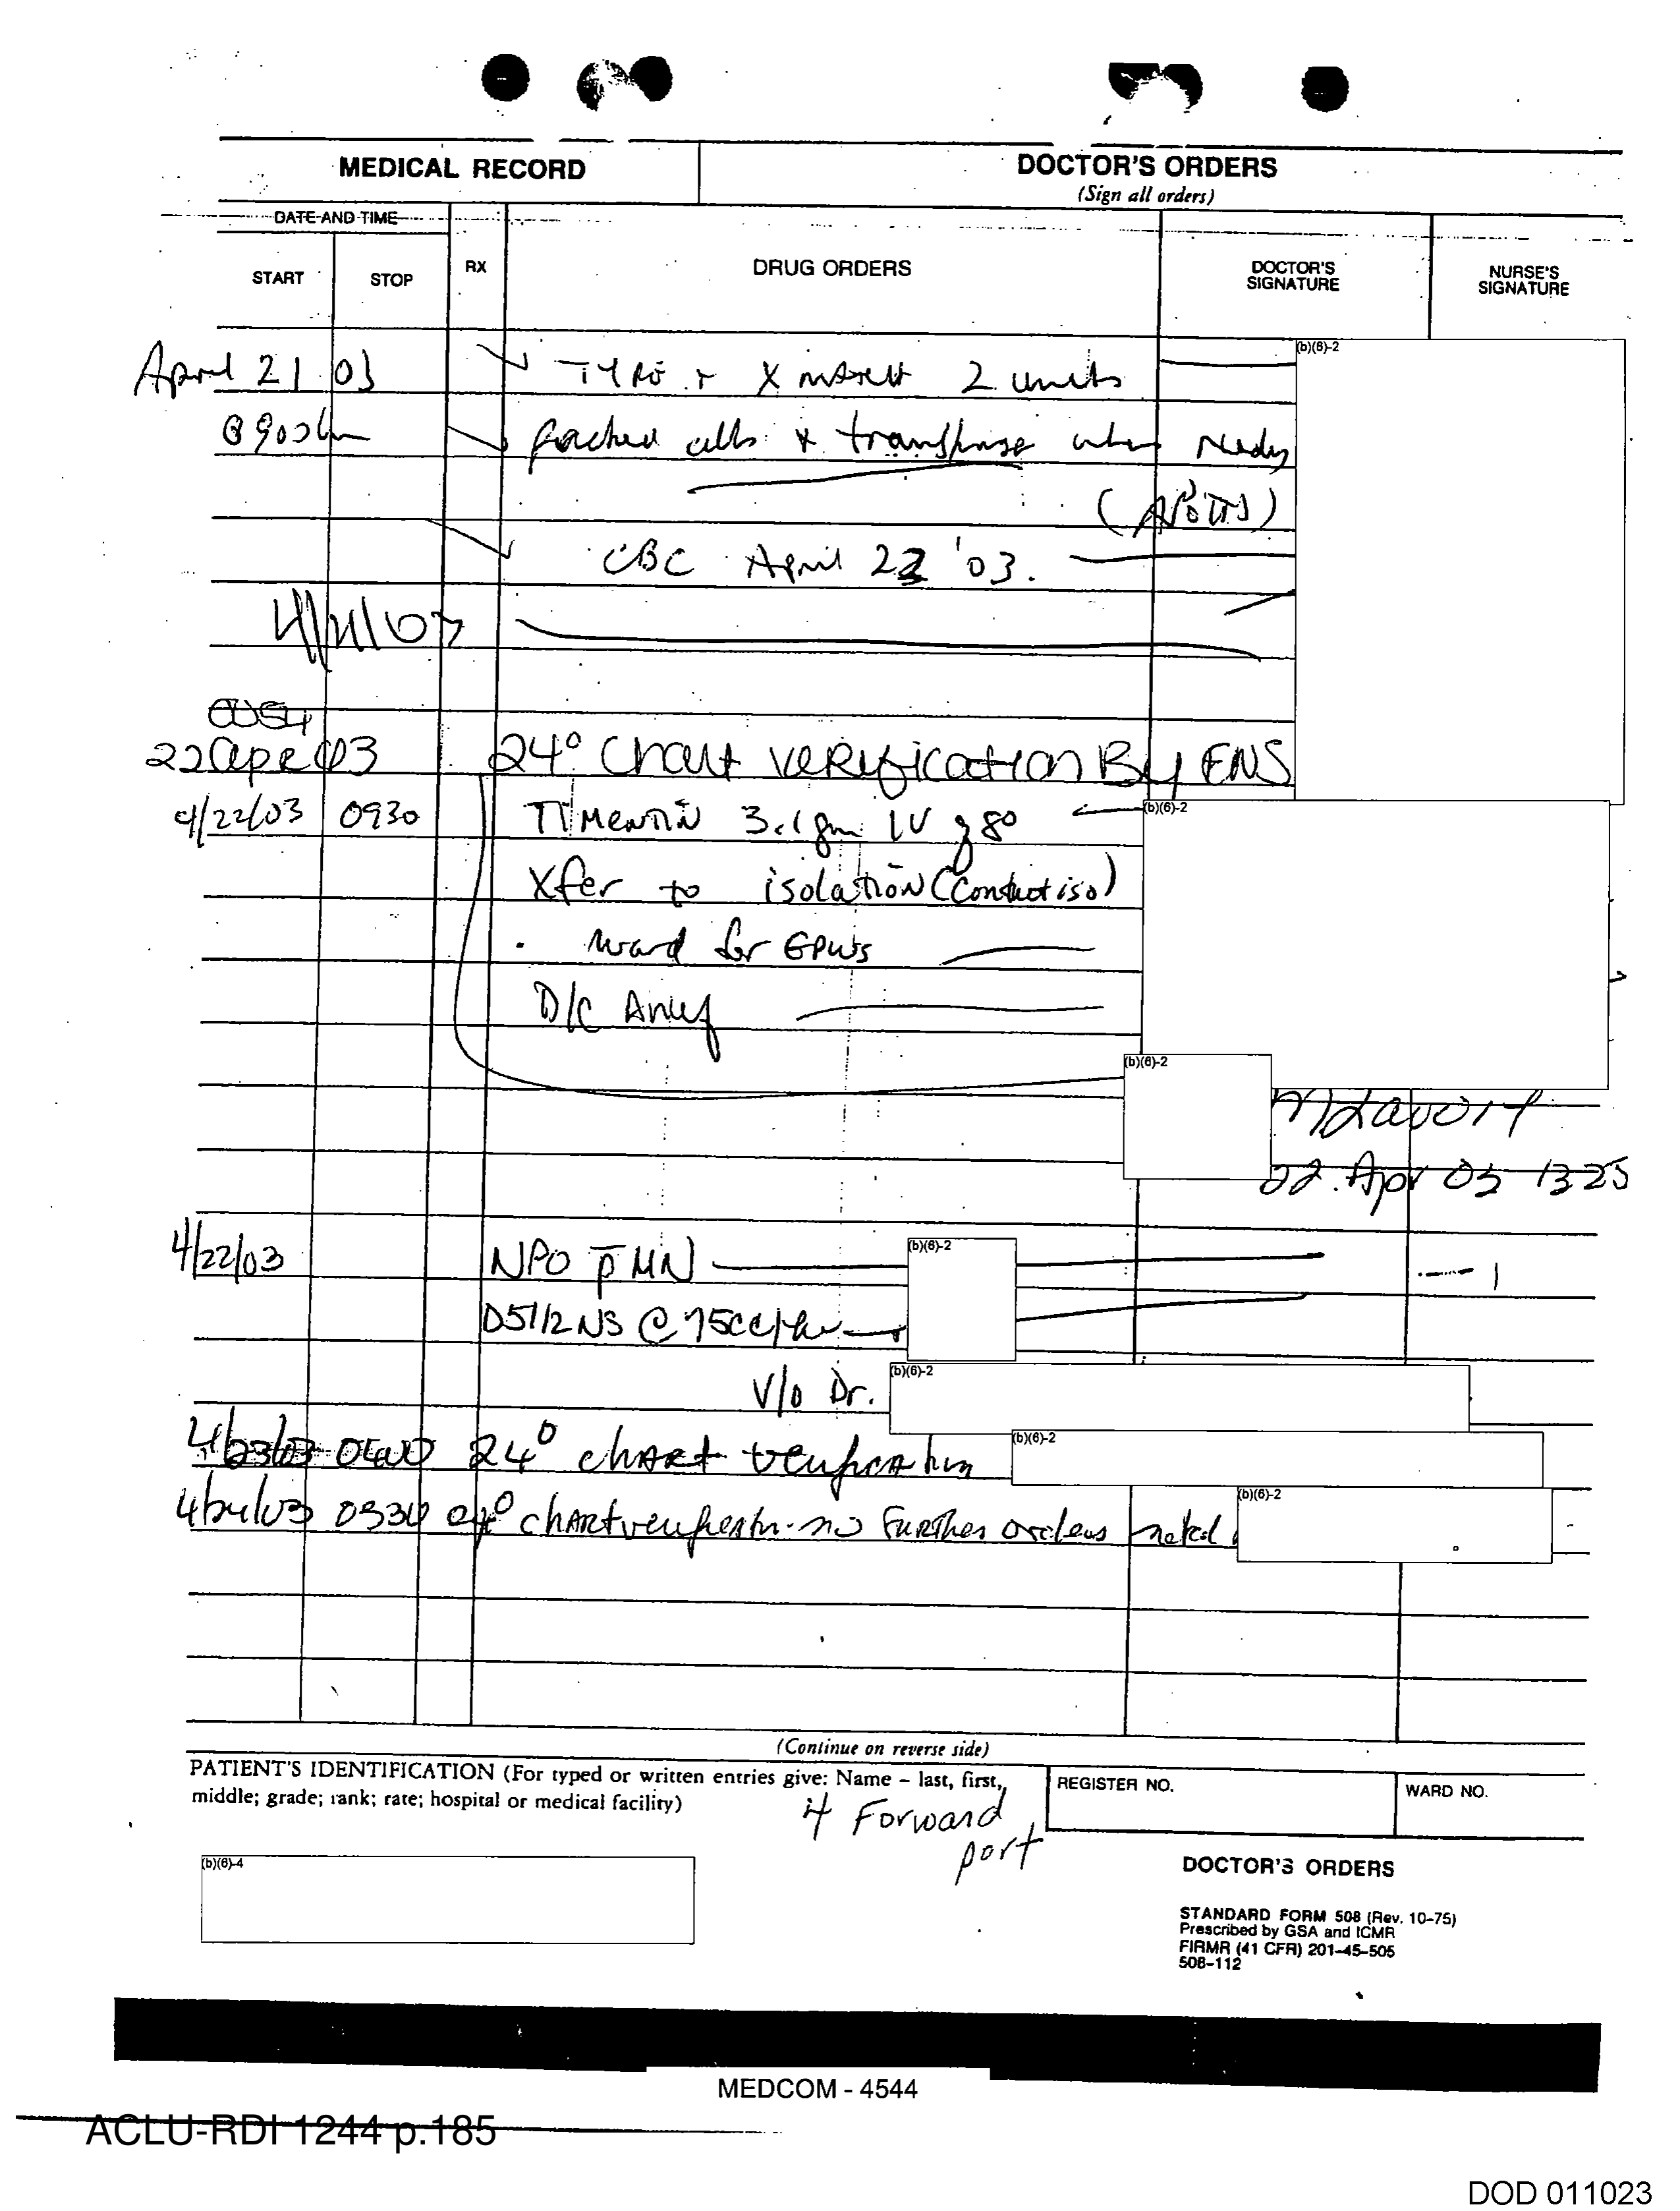 MEDICAL RECORD
DOCTOR'S ORDERS
(Sign all orders)
DATE AND TIME
START
STOP
RX
DRUG ORDERS
DOCTOR'S SIGNATURE
NURSE'S SIGNATURE
(b)(6)-2
April 21 03 X match 2 units
packed cells + transfuse when ready
CBC April 22 '03.
22 apr 03 24° Chart verification By ENS
4/22/03 0930 Timentin 3.1 gm IV q 8°
(b)(6)-2
Xfer to isolation (contact iso)
ward for EPWs
D/C Ancef
(b)(6)-2
22 Apr 03 1325
4/22/03 NPO p̄ MN
(b)(6)-2
D5 1/2 NS @ 75cc/hr
V/o Dr.
(b)(6)-2
4/23/03 0400 24° chart verification
(b)(6)-2
4/24/03 0330 24° chart verification - no further orders noted
(b)(6)-2
(Continue on reverse side)
PATIENT'S IDENTIFICATION (For typed or written entries give: Name – last, first,
middle; grade; rank; rate; hospital or medical facility)
Forward
port
REGISTER NO.
WARD NO.
(b)(6)-4
DOCTOR'S ORDERS
STANDARD FORM 508 (Rev. 10-75)
Prescribed by GSA and ICMR
FIRMR (41 CFR) 201-45-505
508-112
MEDCOM - 4544
ACLU-RDI 1244 p.185
DOD 011023